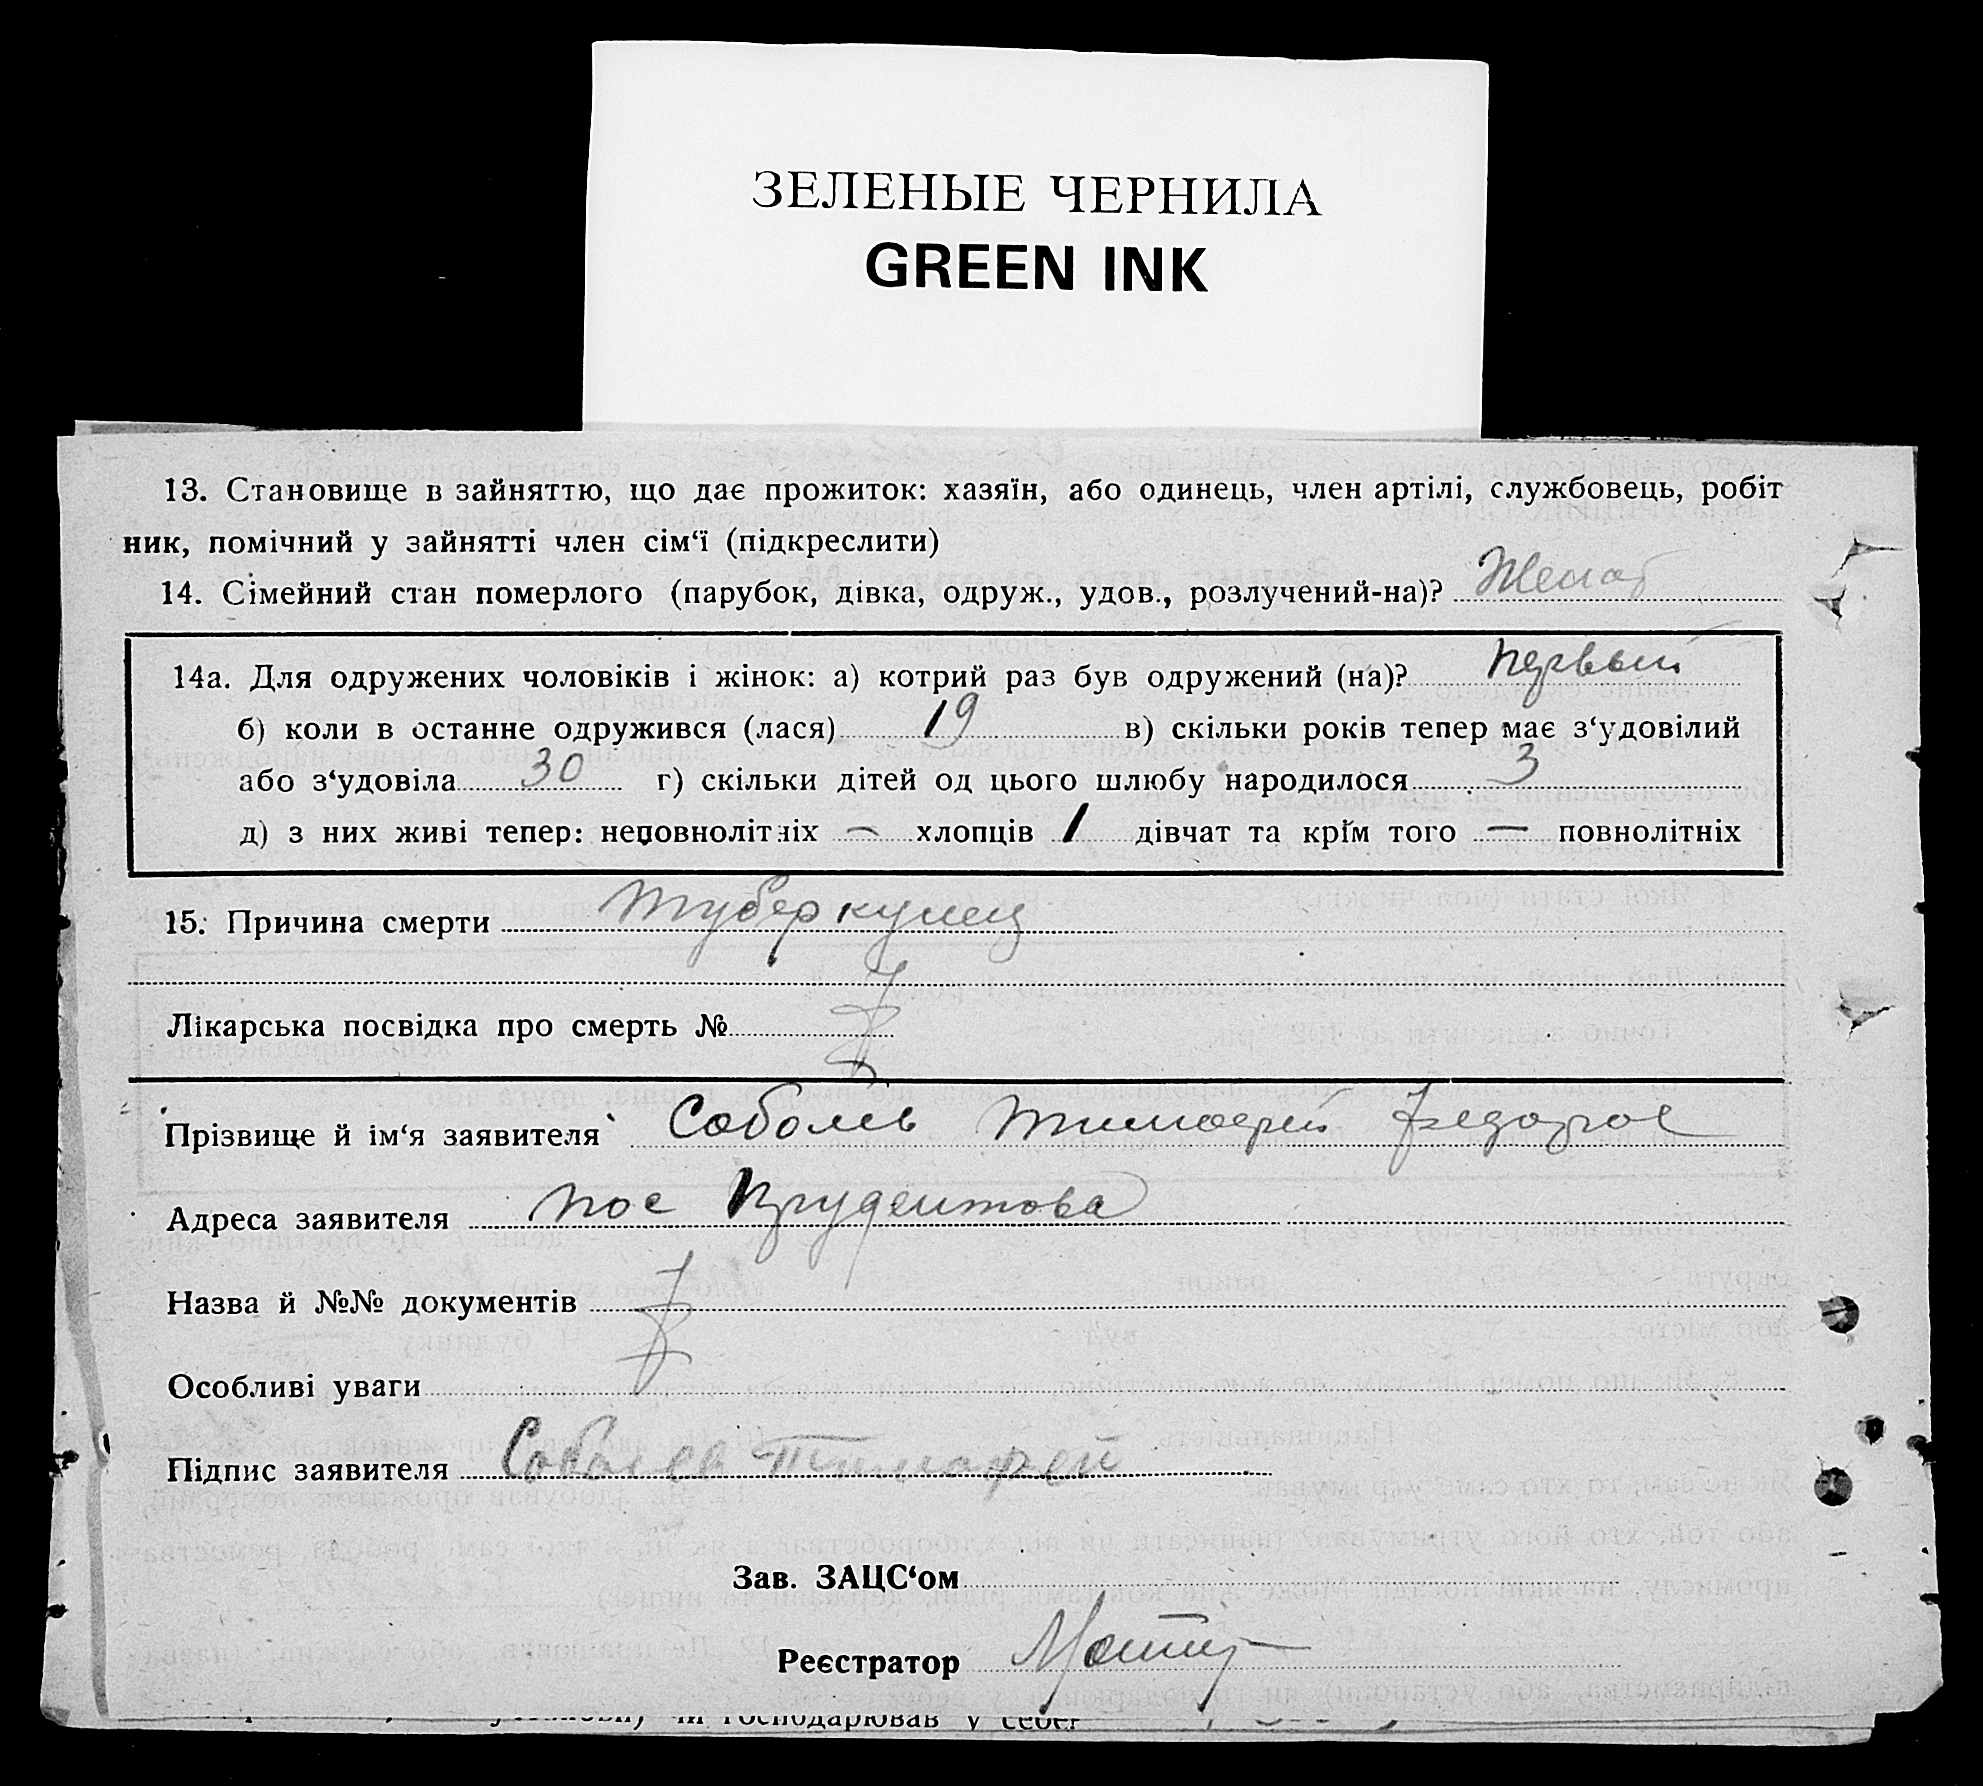 ЗЕЛЕНЫЕ ЧЕРНИЛА
GREEN INK
13. Становище в зайняттю, що дає прожиток: хазяїн, або одинець, член артілі, службовець, робіт
ник, помічний у зайнятті член сім‘ї (підкреслити)
14. Сімейний стан померлого (парубок, дівка, одруж., удов., розлучений-на)? Женат
14а. Для одружених чоловіків і жінок: а) котрий раз був одружений (на)? первый
б) коли в останне одружився (лася) 19 в) скільки років тепер має з‘удовілий
або з‘удовіла 30 г) скільки дітей од цього шлюбу народилося 3
д) з них живі тепер: неповнолітніх — хлопців 1 дівчат та крім того — повнолітніх
15. Причина смерти туберкулец
Лікарська посвідка про смерть №
Прізвище й ім‘я заявителя Соболев Тимофей Федоров
Адреса заявителя пос
Назва й №№ документів
Особливі уваги
Підпис заявителя Соболев Тимофей
Зав. ЗАЦС‘ом
Реєстратор
господарював у себе